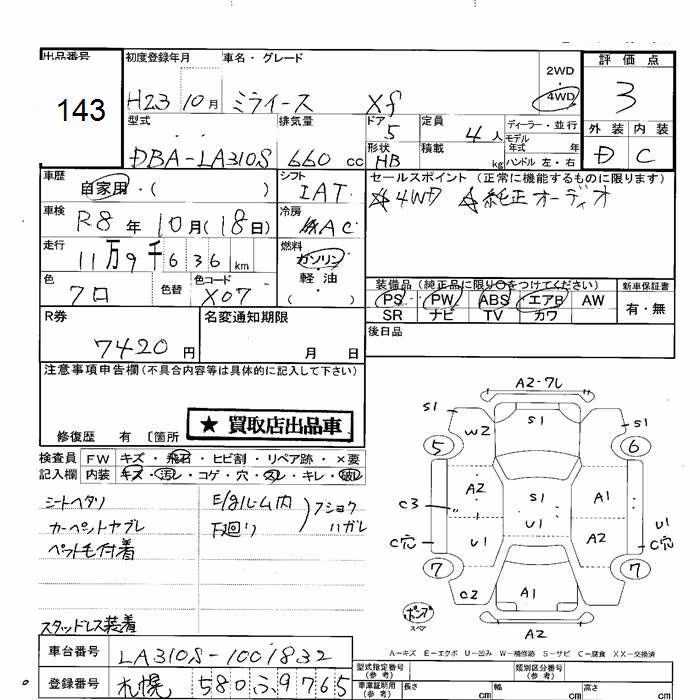 出品番号 初度登録年月 車名・グレード 評価点
143 H23 10月 ミライース Xf 2WD ・ 4WD 3
型式 排気量 ドア 定員 ディーラー・並行 外装 内装
DBA-LA310S 660 cc 5 4人 モデル年式 年 D C
形状 HB 積載 kg ハンドル 左・右
車歴 自家用・( ) シフト IAT セールスポイント (正常に機能するものに限ります)
☆4WD ☆純正オーディオ
車検 R8年 10月(18日) 冷房 AC
走行 11万9千636km 燃料 ガソリン・軽油・( )
装備品(純正品に限り○をつけてください) 新車保証書
色 クロ 色替 色コード X07 PS PW ABS エアB AW 有・無
SR ナビ TV カワ
R券 名変通知期限 後日品
7420円 月 日
注意事項申告欄(不具合内容等は具体的に記入して下さい)
★ 買取店出品車
修復歴 有 〔箇所
検査員 FW キズ・飛石・ヒビ割・リペア跡・×要
記入欄 内装 キズ・汚レ・コゲ・穴・スレ・キレ・破レ
シートヘタリ E/gルーム内
カーペットヤブレ 下廻り フショクハガレ
ペット毛付着
スタッドレス装着
A2-7L
S1 S1 S1
W2
5 6
A2 S1 A1
C3
U1 U1 A2 U1
C穴 C穴
7 7
C2 A1
A2
パンプ スペア
A-キズ E-エクボ U-凹み W-補修跡 S-サビ C-腐食 XX-交換済
車台番号 LA310S-1001832 型式指定番号(参考) 類別区分番号(参考)
登録番号 札幌 580 ふ 9765 車庫証明用(参考) 長さ cm 幅 cm 高さ cm